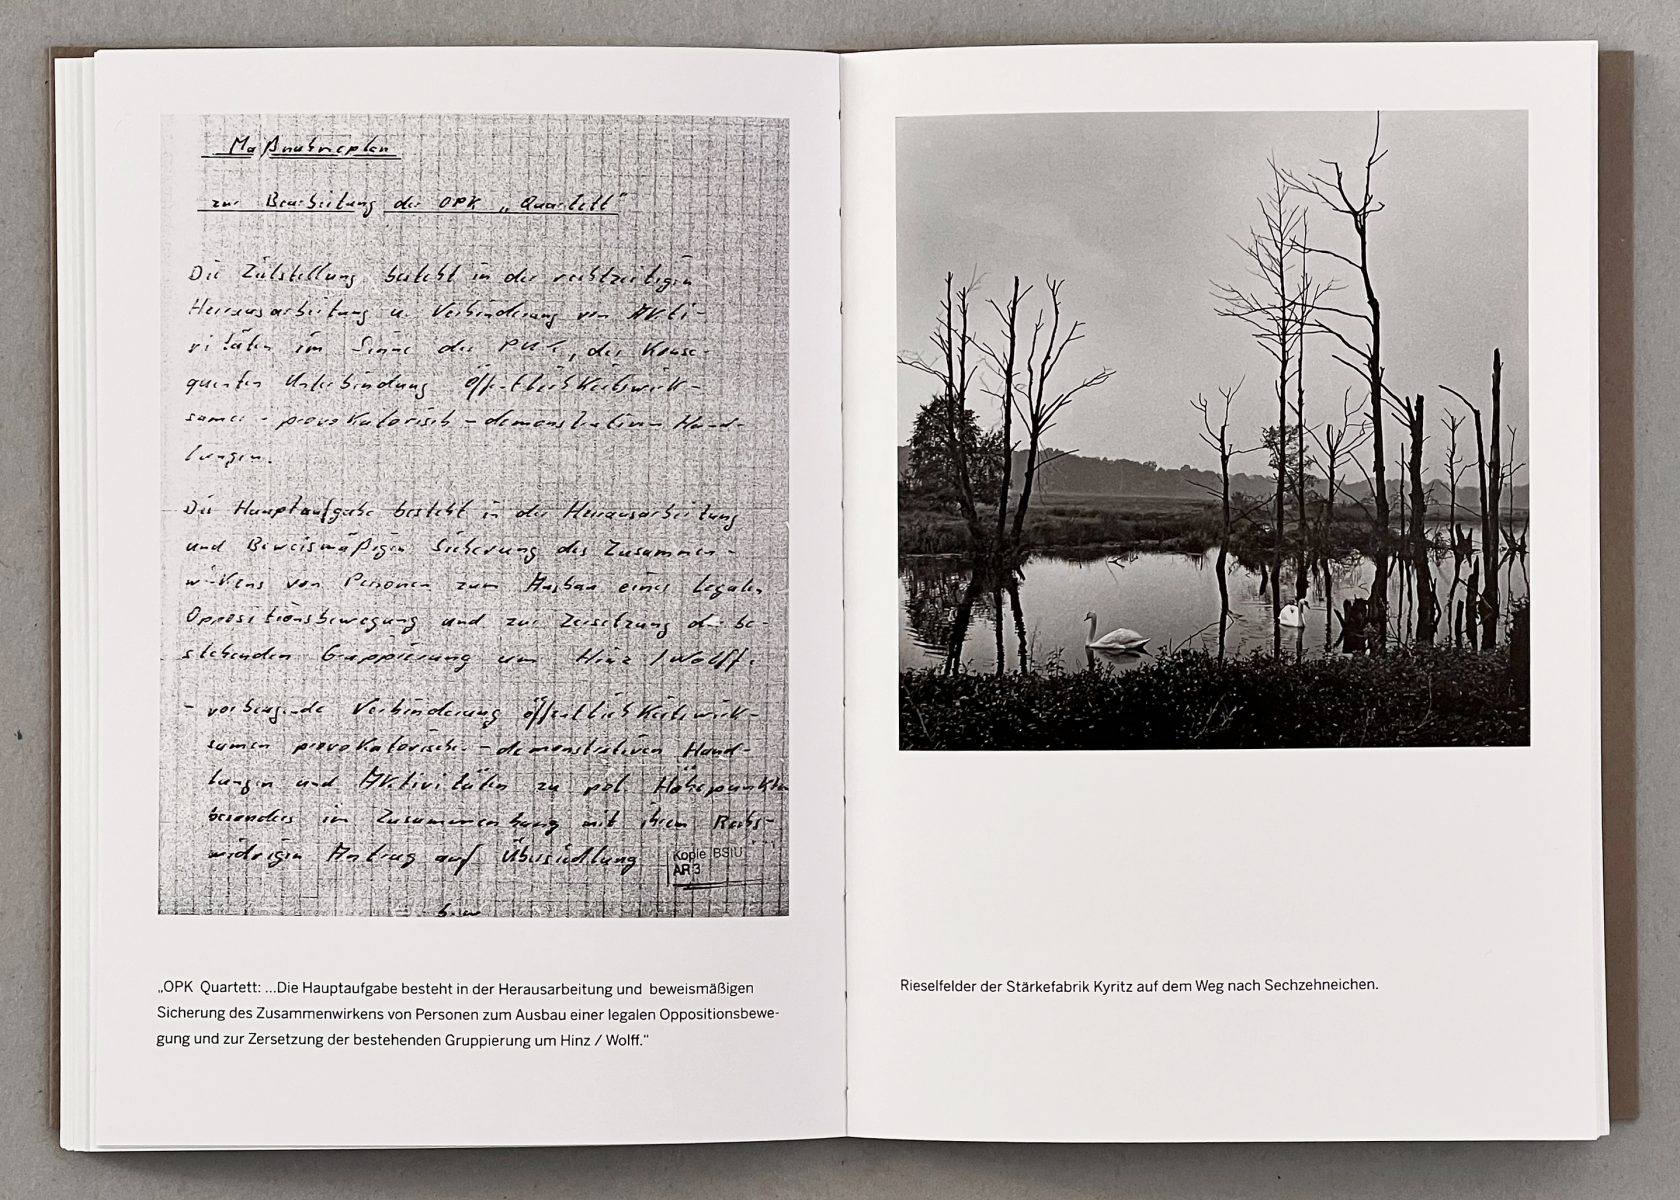 Maßnahmeplan
zur Bearbeitung der OPK „Quartett"
Die Zielstellung besteht in der rechtzeitigen
Herausarbeitung u. Verhinderung von Akti-
vitäten im Sinne des PUT, der Konse-
quenten Unterbindung öffentlichkeitswirk-
samer - provokatorisch - demonstrativer Hand-
lungen.
Die Hauptaufgabe besteht in der Herausarbeitung
und Beweismäßigen Sicherung des Zusammen-
wirkens von Personen zum Ausbau einer legalen
Oppositionsbewegung und zur Zersetzung der be-
stehenden Gruppierung um Hinz / Wolff.
- vorbeugende Verhinderung öffentlichkeitswirk-
samen provokatorisch - demonstrativen Hand-
lungen und Aktivitäten zu pol. Höhepunkten
besonders im Zusammenhang mit ihrem Rechts-
widrigen Antrag auf Übersiedlung
Kopie BStU
AR 3
„OPK Quartett: ...Die Hauptaufgabe besteht in der Herausarbeitung und beweismäßigen
Sicherung des Zusammenwirkens von Personen zum Ausbau einer legalen Oppositionsbewe-
gung und zur Zersetzung der bestehenden Gruppierung um Hinz / Wolff."
Rieselfelder der Stärkefabrik Kyritz auf dem Weg nach Sechzehneichen.